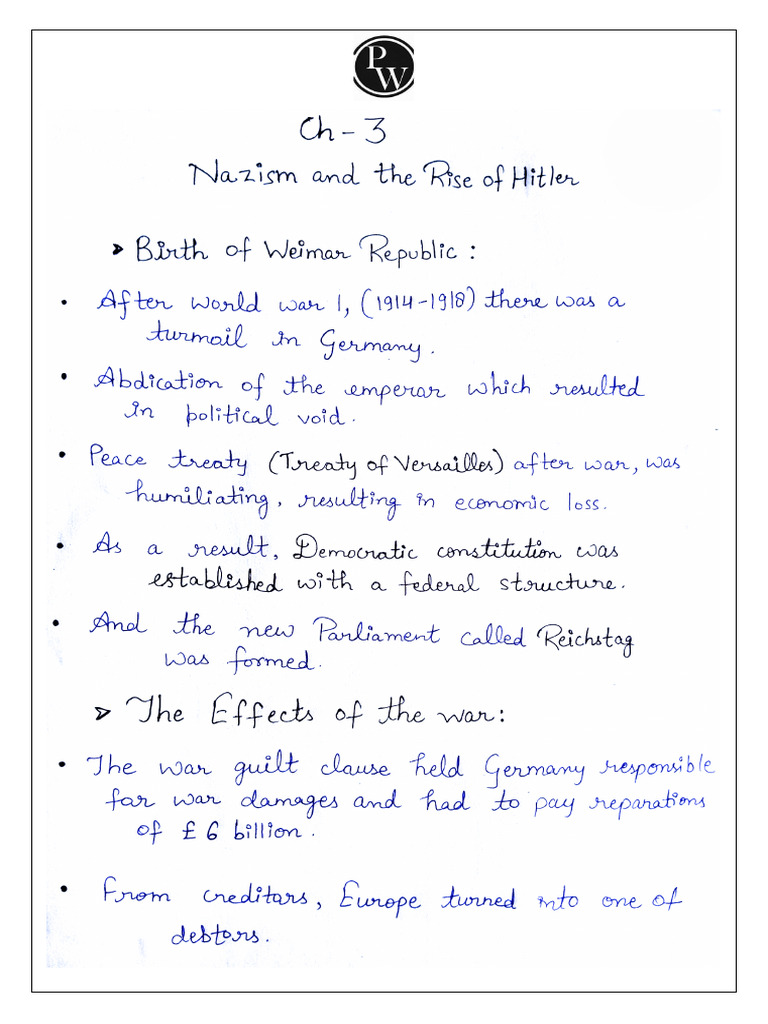 PW
Ch - 3
Nazism and the Rise of Hitler
➤ Birth of Weimar Republic :
• After world war 1, (1914-1918) there was a
turmail in Germany.
• Abdication of the emperar which resulted
in political void.
• Peace treaty (Treaty of Versailles) after war, was
humiliating, resulting in economic loss.
• As a result, Democratic constitution was
established with a federal structure.
• And the new Parliament called Reichstag
was formed.
➤ The Effects of the war:
• The war guilt clause held Germany responsible
far war damages and had to pay reparations
of £ 6 billion.
• From creditars, Europe turned into one of
debtors.